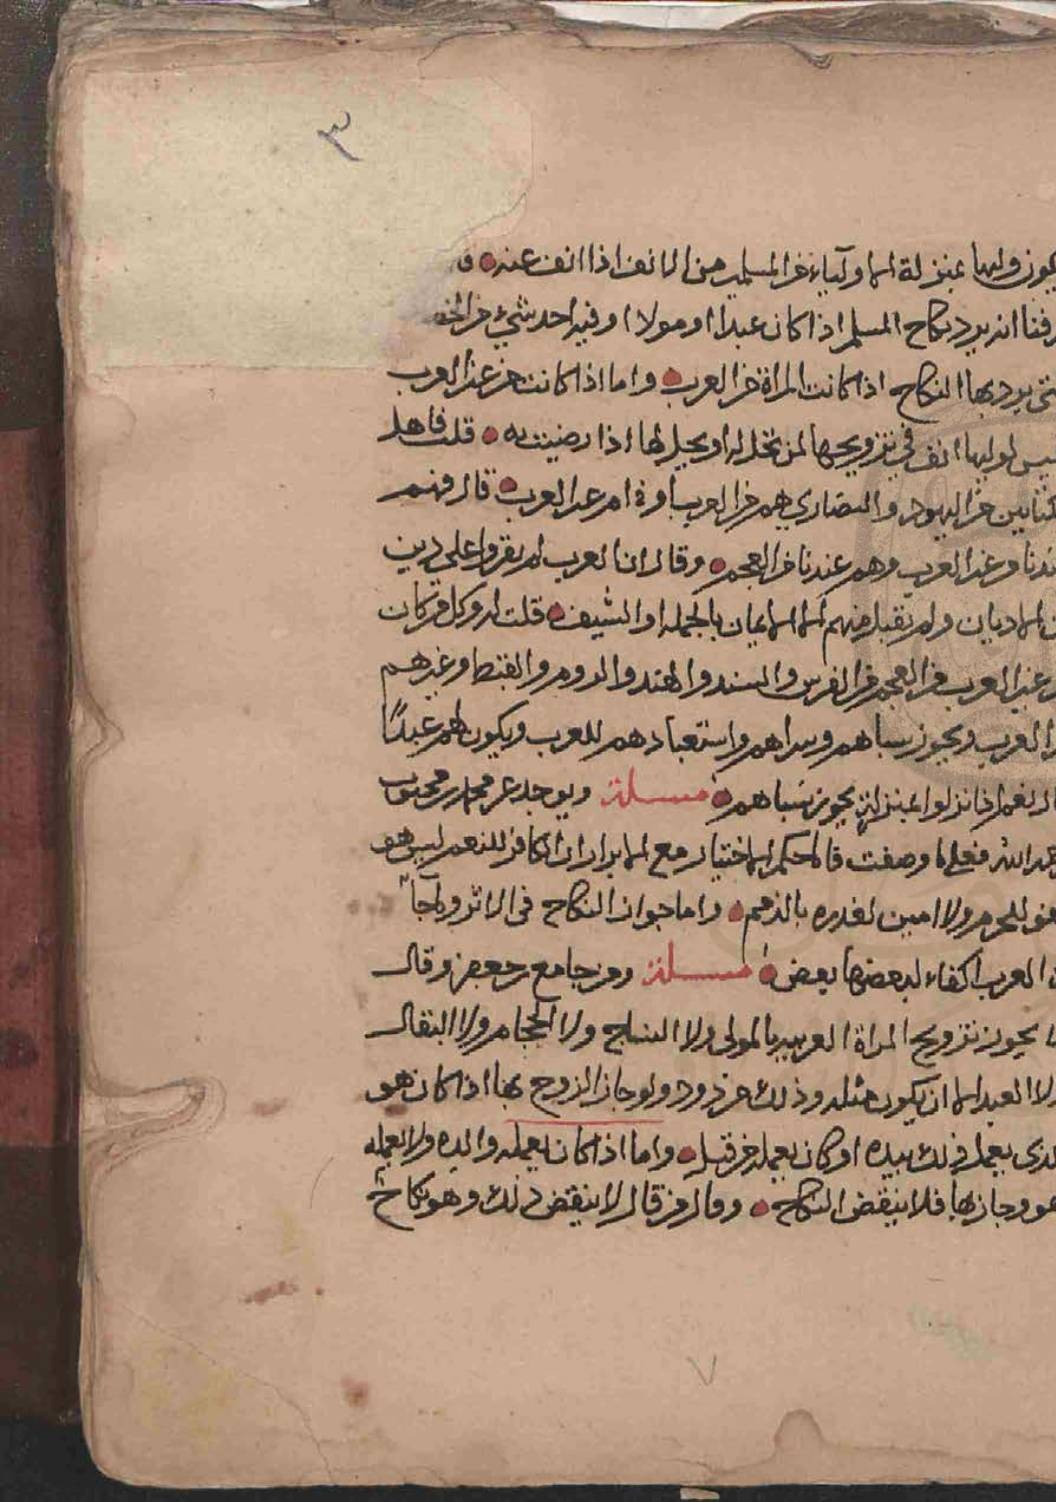 ٣
يكون وليها بمنزلة الاولياء من المسلمين من الانف اذا انف عنه
انه يرد نكاح المسلم اذا كان عبدا او مولا او فيه احد شيء من
يرد بها النكاح اذا كانت المراة من العرب واما اذا كانت من غير العرب
لوليها انف في تزويجها لمن تحل له او يحل لها اذا رضيت به قلت فاهل
من اليهود والنصارى هم من العرب او من غير العرب قال فهم
من غير العرب وهم عندنا من العجم وقال ان العرب لم يقروا على دين
الاديان ولم يقبل منهم الا الايمان بالجملة او السيف قلت له وكل من كان
غير العرب من العجم من الفرس والسند والهند والروم والقبط وغيرهم
العرب ويجوز سباهم وشراهم واستعبادهم للعرب ويكون لهم عبدًا
نعم اذا نزلوا بمنزلة يجوز سباهم مسئلة ويوجد عن محمد بن محبوب
الله فعلى ما وصفت فالحكم الاختيار مع الابرار ان الكافر للنعم ليس هو
للحرم ولا امين لغدره بالذمم واما جواز النكاح في الاثر وجآءَ
العرب اكفاء لبعضها بعض مسئلة ومن جامع بن جعفر وقال
يجوز تزويج المراة العربية بالمولى ولا النساج ولا الحجام ولا البقال
ولا العبد الا ان يكون مثله وذلك مردود ولو جاز الزوج بها اذا كان هو
الذى يعمل ذلك بيده او كان يعمله من قبل واما اذا كان يعمله والده ولا يعمله
هو وجاز بها فلا ينقض النكاح وقال من قال لا ينقض ذلك وهو نكاح
٧